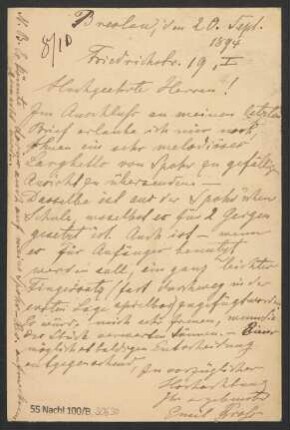 Breslau, den 20. Sept.
1894
8/10
Friedrichstr. 19, I
Hochgeehrte Herren!
Im Anschluß an meinen letzten
Brief erlaube ich mir noch
Ihnen ein sehr melodiöses
Larghetto von Spohr zu gefälliger
Ansicht zu übersenden. —
Dasselbe ist aus der Spohr'schen
Schule, woselbst es für 2 Geigen
gesetzt ist. Auch ist — wenn
es für Anfänger benutzt
werden soll, ein ganz leichter
Fingersatz, fast durchweg in der
ersten Lage
Es würde mich sehr freuen, wenn Sie
das Stück verwerten können. — Einer
möglichst baldigen Entscheidung
entgegensehend,
In vorzüglicher
Hochachtung
Ihr ergebenster
Emil
N. B. Es könnte
55 Nachl 100/B